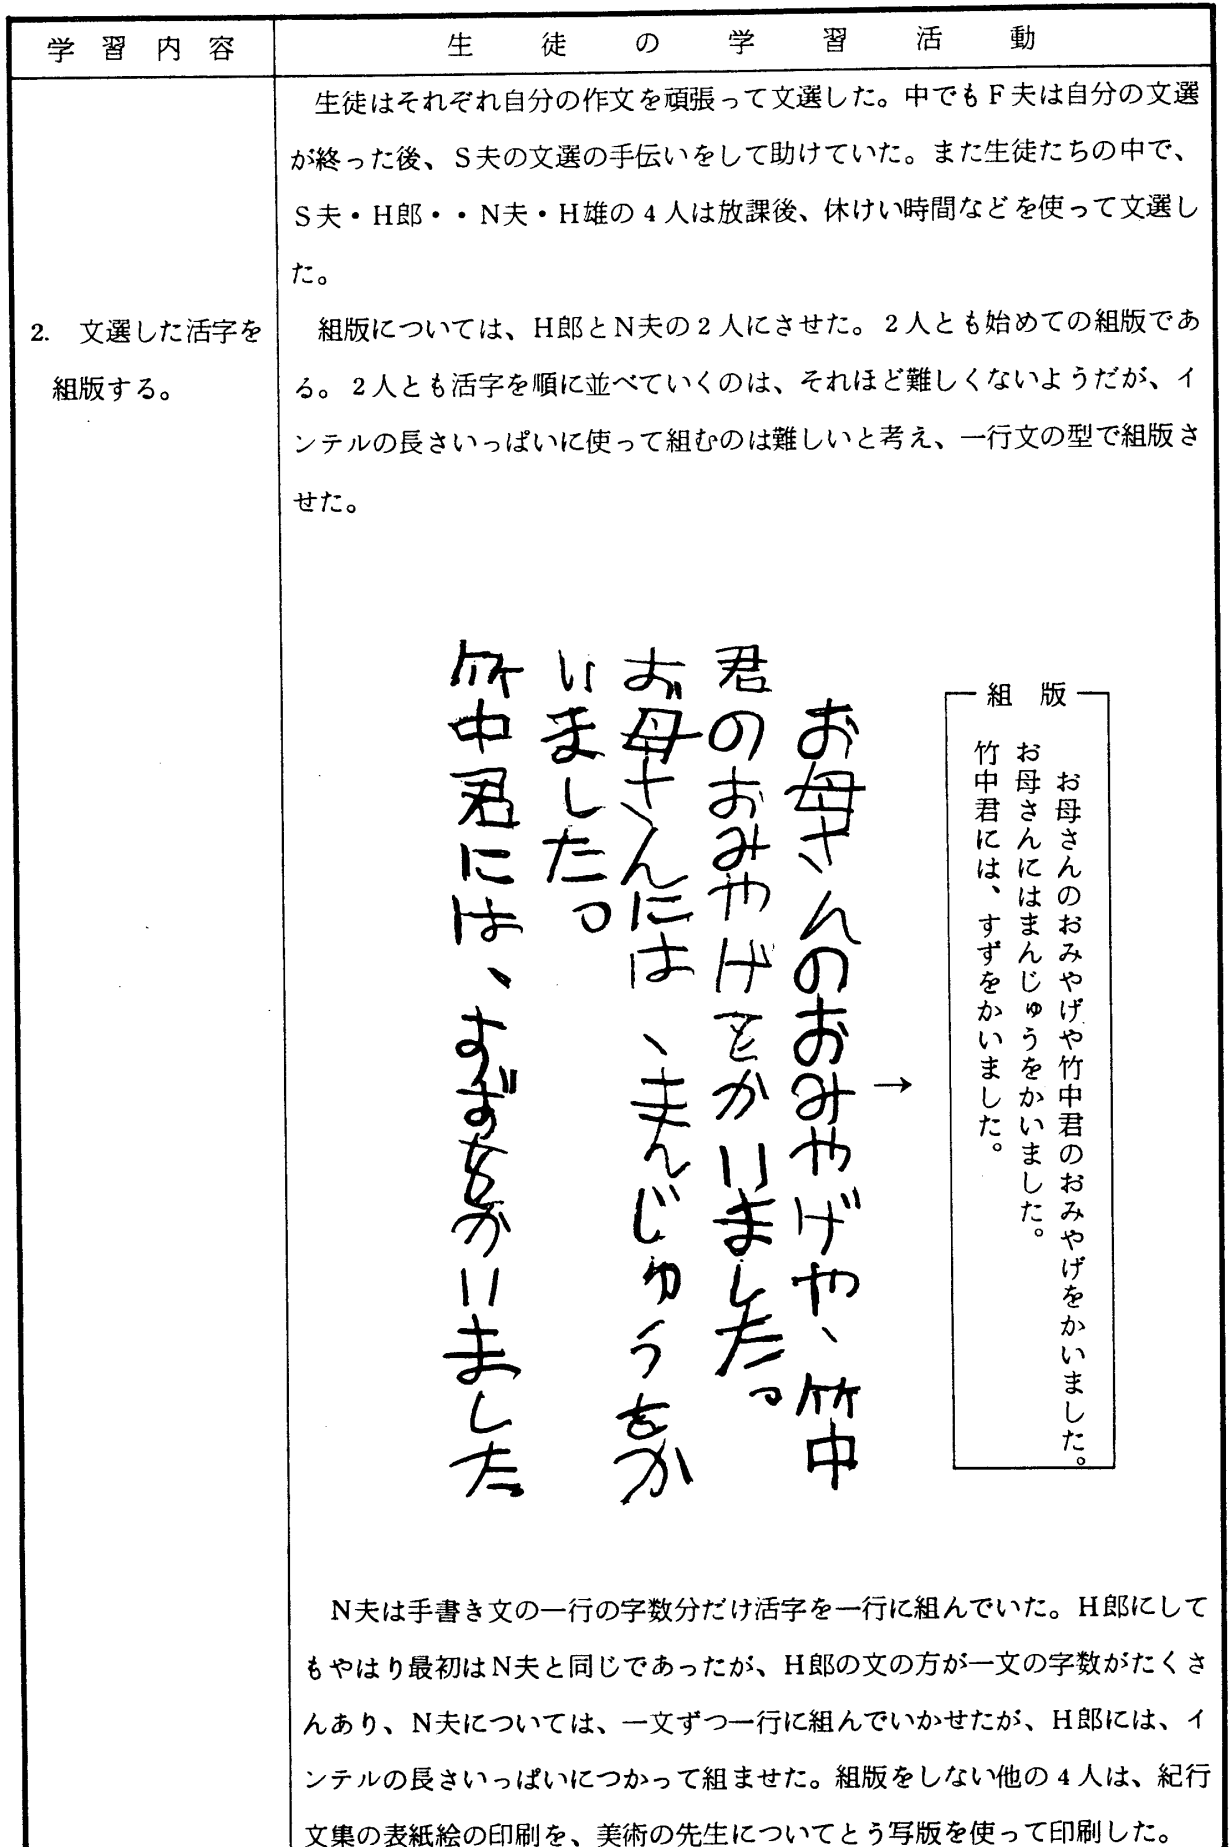 学習内容
生徒の学習活動
生徒はそれぞれ自分の作文を頑張って文選した。中でもF夫は自分の文選
が終った後、S夫の文選の手伝いをして助けていた。また生徒たちの中で、
S夫・H郎・・N夫・H雄の4人は放課後、休けい時間などを使って文選し
た。
2. 文選した活字を
組版する。
組版については、H郎とN夫の2人にさせた。2人とも始めての組版であ
る。2人とも活字を順に並べていくのは、それほど難しくないようだが、イ
ンテルの長さいっぱいに使って組むのは難しいと考え、一行文の型で組版さ
せた。
組版
お母さんのおみやげや竹中君のおみやげをかいました。
お母さんにはまんじゅうをかいました。
竹中君には、すずをかいました。
→
お母さんのおみやげや、竹中
君のおみやげをかいました。
お母さんには、まんじゅうをか
いました。
竹中君には、すずをかいました。
N夫は手書き文の一行の字数分だけ活字を一行に組んでいた。H郎にして
もやはり最初はN夫と同じであったが、H郎の文の方が一文の字数がたくさ
んあり、N夫については、一文ずつ一行に組んでいかせたが、H郎には、イ
ンテルの長さいっぱいにつかって組ませた。組版をしない他の4人は、紀行
文集の表紙絵の印刷を、美術の先生についてとう写版を使って印刷した。